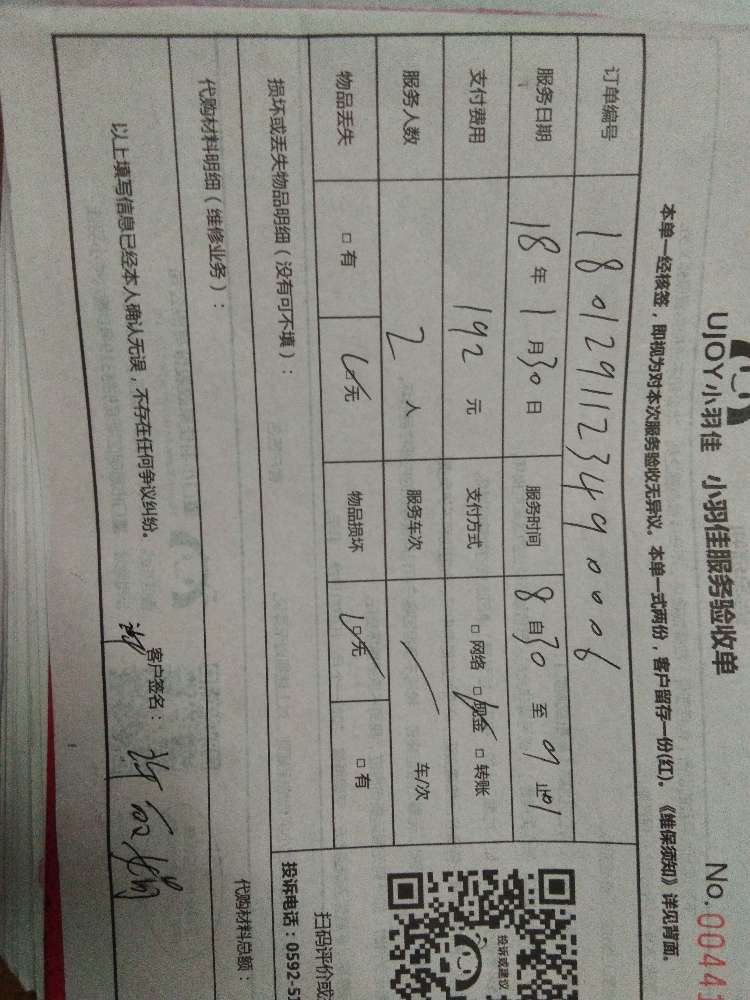 UJOY小羽佳 小羽佳服务验收单
No.0044
本单一经核签，即视为对本次服务验收无异议。本单一式两份，客户留存一份(红)。《维保须知》详见背面。
订单编号 1801291123490006
服务日期 18年1月30日 服务时间 8自30至9止01
支付费用 192元 支付方式 □网络 □现金 □转账
服务人数 2人 服务车次 / 车/次
物品丢失 □有 □无 物品损坏 □无 □有
损坏或丢失物品明细（没有可不填）：
投诉或建议
扫码评价或
投诉电话：0592-5
代购材料明细（维修业务）：
代购材料总额：
以上填写信息已经本人确认无误，不存在任何争议纠纷。
客户签名：